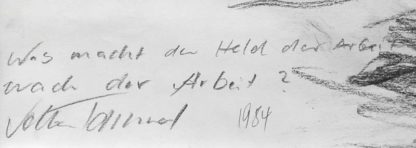 Was macht der Held der Arbeit
nach der Arbeit?
1984